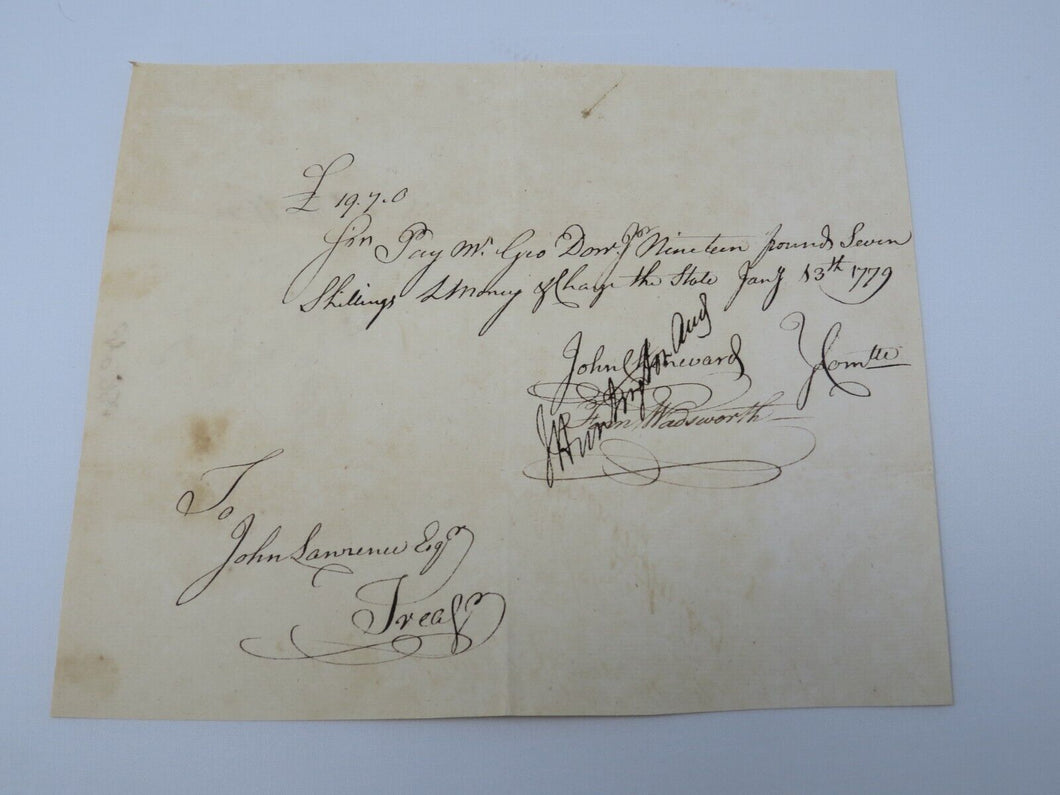 £ 19.7.0
Sir Pay Mr. Geo Dorr Jr Nineteen pounds Seven
Shillings L Money & Charge the State Jany 13th 1779
John Chenevard } Comtte
Fenn Wadsworth
J Huntington
To
John Lawrence Esqr
Treasr